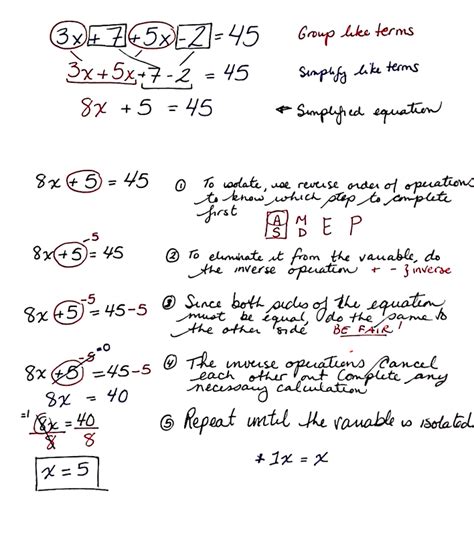 3x + 7 + 5x - 2 = 45 Group like terms
3x + 5x + 7 - 2 = 45 Simplify like terms
8x + 5 = 45 ← Simplified equation
8x + 5 = 45 ① To isolate, use reverse order of operations
to know which step to complete
first
A M E P
S D
8x + 5 -5 = 45 ② To eliminate it from the variable, do
the inverse operation + - } inverse
8x + 5 -5 = 45 - 5 ③ Since both sides of the equation
must be equal, do the same to
the other side BE FAIR!
8x + 5 -5 =0 = 45 - 5 ④ The inverse operations cancel
each other out. Complete any
necessary calculation
8x = 40
=1 8x = 40 ⑤ Repeat until the variable is isolated.
8 8
x = 5 * 1x = x